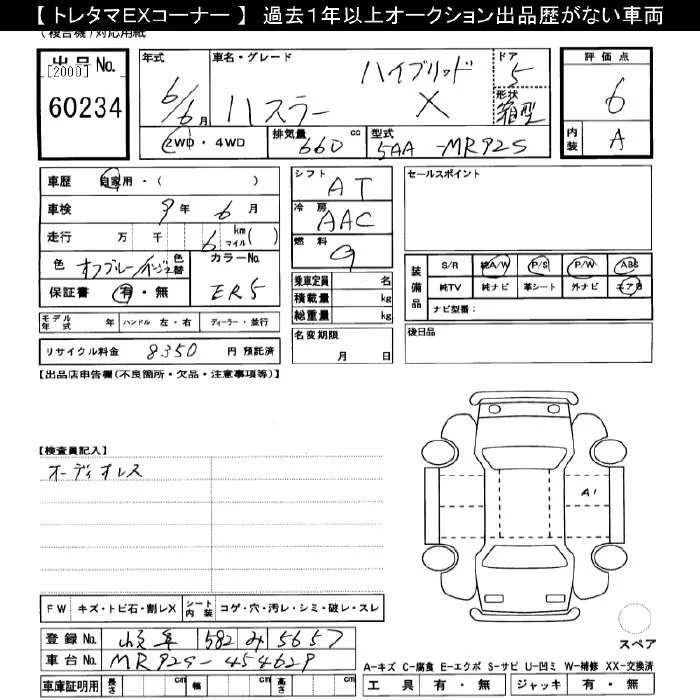 【 トレタマEXコーナー 】 過去1年以上オークション出品歴がない車両
(複合機)対応用紙
出品No.
[2000]
60234
年式
6/6月
車名・グレード
ハスラー ハイブリッド X
ドア
5
形状
箱型
評価点
6
内装
A
2WD・4WD
排気量
660 cc
型式
5AA-MR92S
車歴 自家用・( )
車検 9年 6月
走行 万 千 6 km マイル( )
色 オフブルー/ 色替
カラーNo.
ER5
保証書 有・無
シフト
AT
冷房
AAC
燃料
G
乗車定員 名
積載量 kg
総重量 kg
名変期限
月 日
セールスポイント
装備品
S/R 純A/W P/S P/W ABS
純TV 純ナビ 革シート 外ナビ エアB
ナビ型番:
後日品
モデル年式 年 ハンドル 左・右 ディーラー・並行
リサイクル料金 8350 円 預託済
【出品店申告欄(不良箇所・欠品・注意事項等)】
【検査員記入】
オーディオレス
A1
FW キズ・トビ石・割レX シート内装 コゲ・穴・汚レ・シミ・破レ・スレ
登録No. 岐阜 582 み 5657
車台No. MR92S-454629
車庫証明用 長さ cm 幅 cm 高さ cm
スペア
A-キズ C-腐食 E-エクボ S-サビ U-凹ミ W-補修 XX-交換済
工具 有・無 ジャッキ 有・無